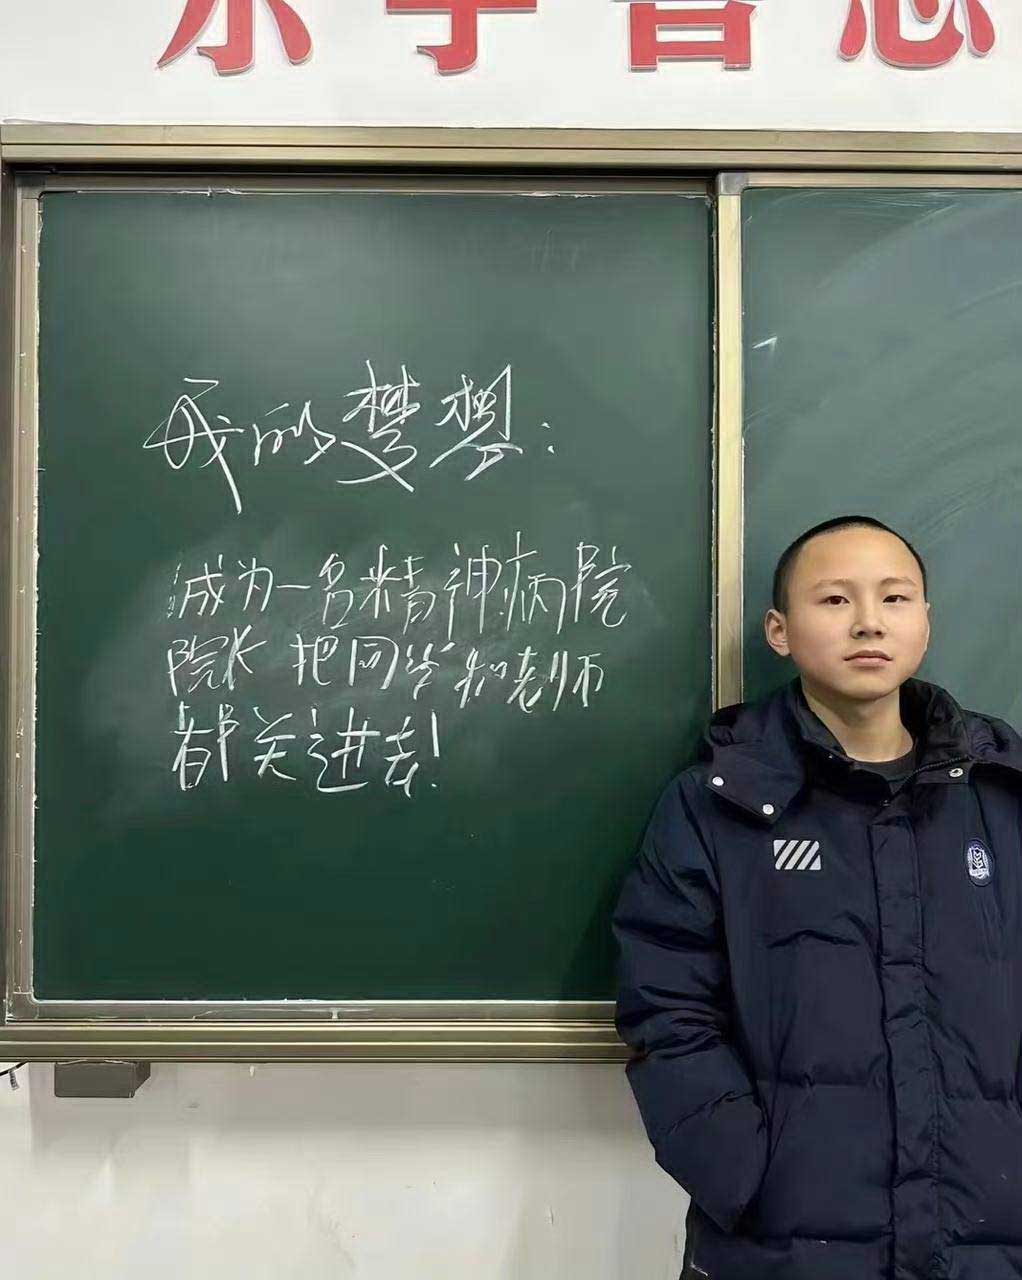 乐学善思
我的梦想：
成为一名精神病院
院长 把同学和老师
都关进去！